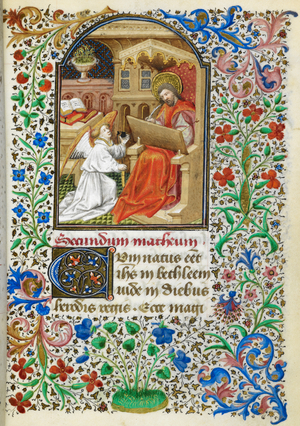 Secundum matheum
Cum natus eet
ihs in bethleem
iude in diebus
herodis regis . Ecce magi